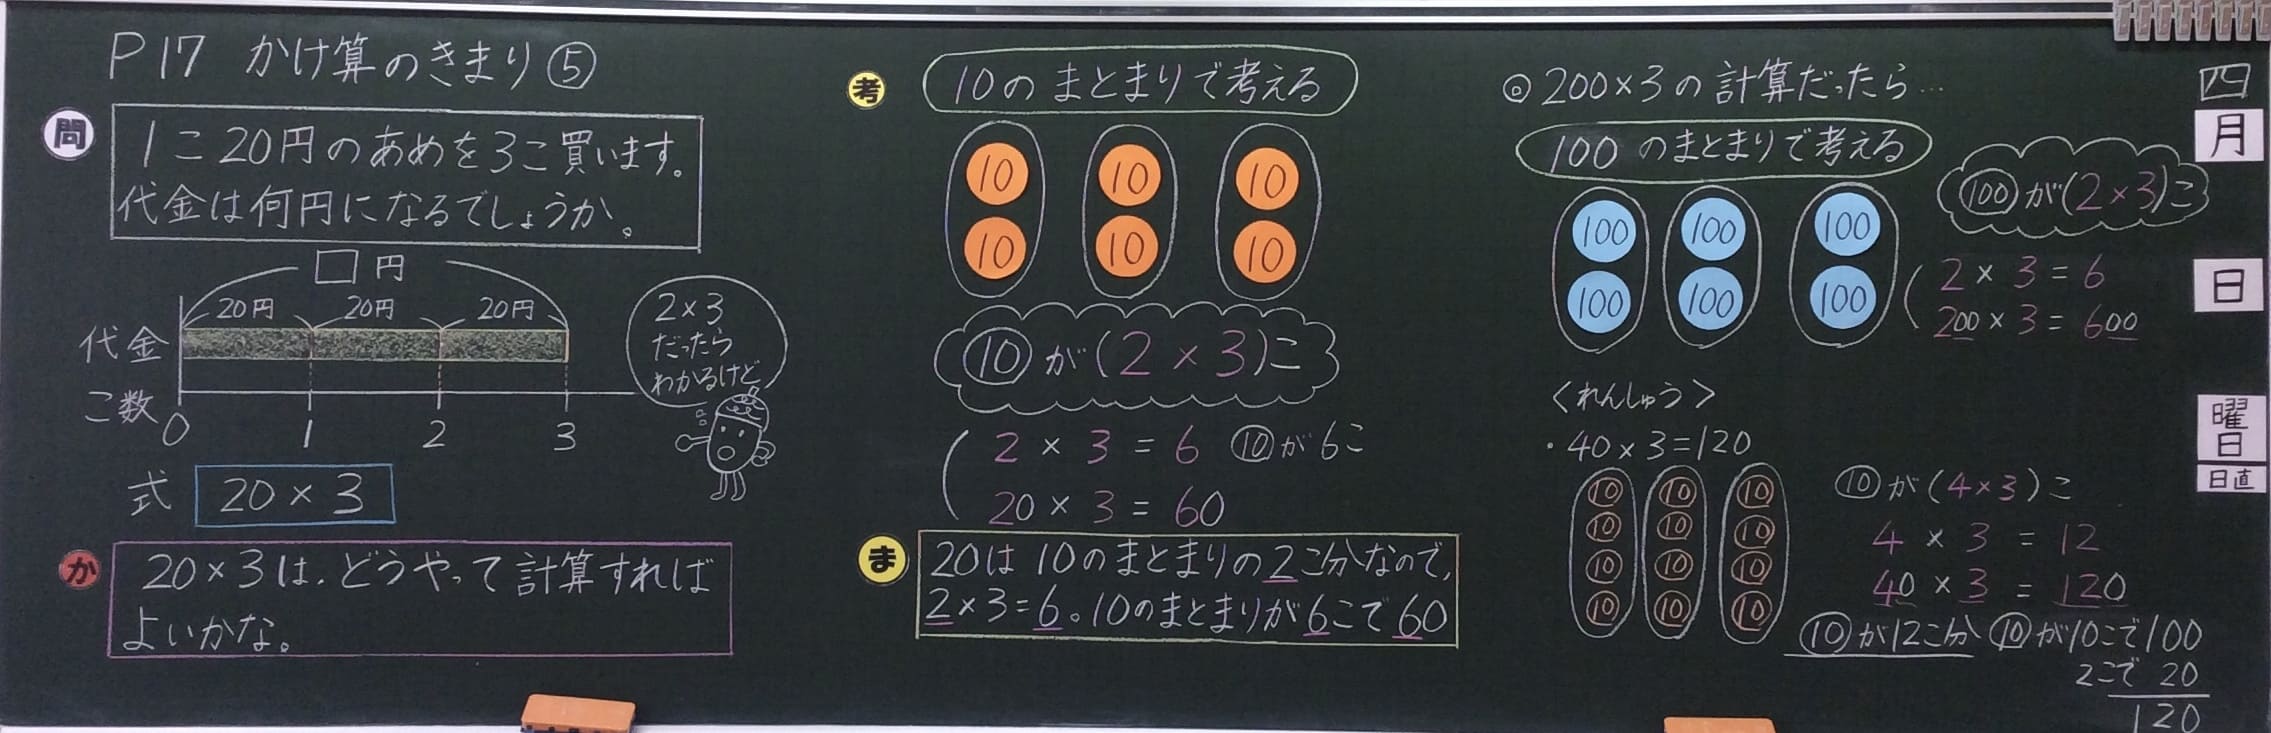 P17 かけ算のきまり⑤
問
1こ20円のあめを3こ買います。
代金は何円になるでしょうか。
□円
20円 20円 20円
代金
こ数
0 1 2 3
2×3
だったら
わかるけど
式 20×3
か
20×3は、どうやって計算すれば
よいかな。
考
10のまとまりで考える
10 10 10
10 10 10
⑩が(2×3)こ
2×3=6 ⑩が6こ
20×3=60
ま
20は10のまとまりの2こ分なので、
2×3=6。10のまとまりが6こで60
◎200×3の計算だったら…
100のまとまりで考える
100 100 100
100 100 100
100が(2×3)こ
2×3=6
200×3=600
<れんしゅう>
・40×3=120
⑩ ⑩ ⑩
⑩ ⑩ ⑩
⑩ ⑩ ⑩
⑩ ⑩ ⑩
⑩が(4×3)こ
4×3=12
40×3=120
⑩が12こ分 ⑩が10こで100
2こで 20
120
四
月
日
曜
日
日直